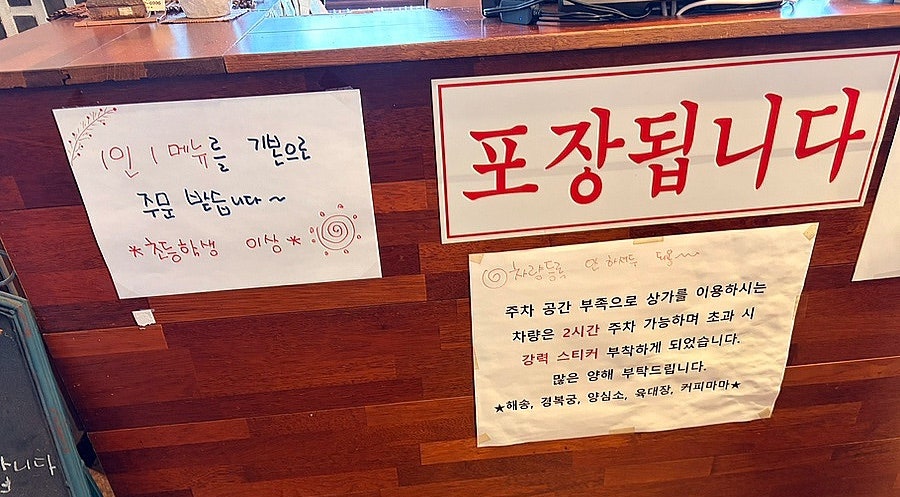 1인 1 메뉴를 기본으로
주문 받습니다~
*초등학생 이상*
포장됩니다
차량등록 안 하셔두 되욤~~
주차 공간 부족으로 상가를 이용하시는
차량은 2시간 주차 가능하며 초과 시
강력 스티커 부착하게 되었습니다.
많은 양해 부탁드립니다.
★해송, 경복궁, 양심소, 육대장, 커피마마★